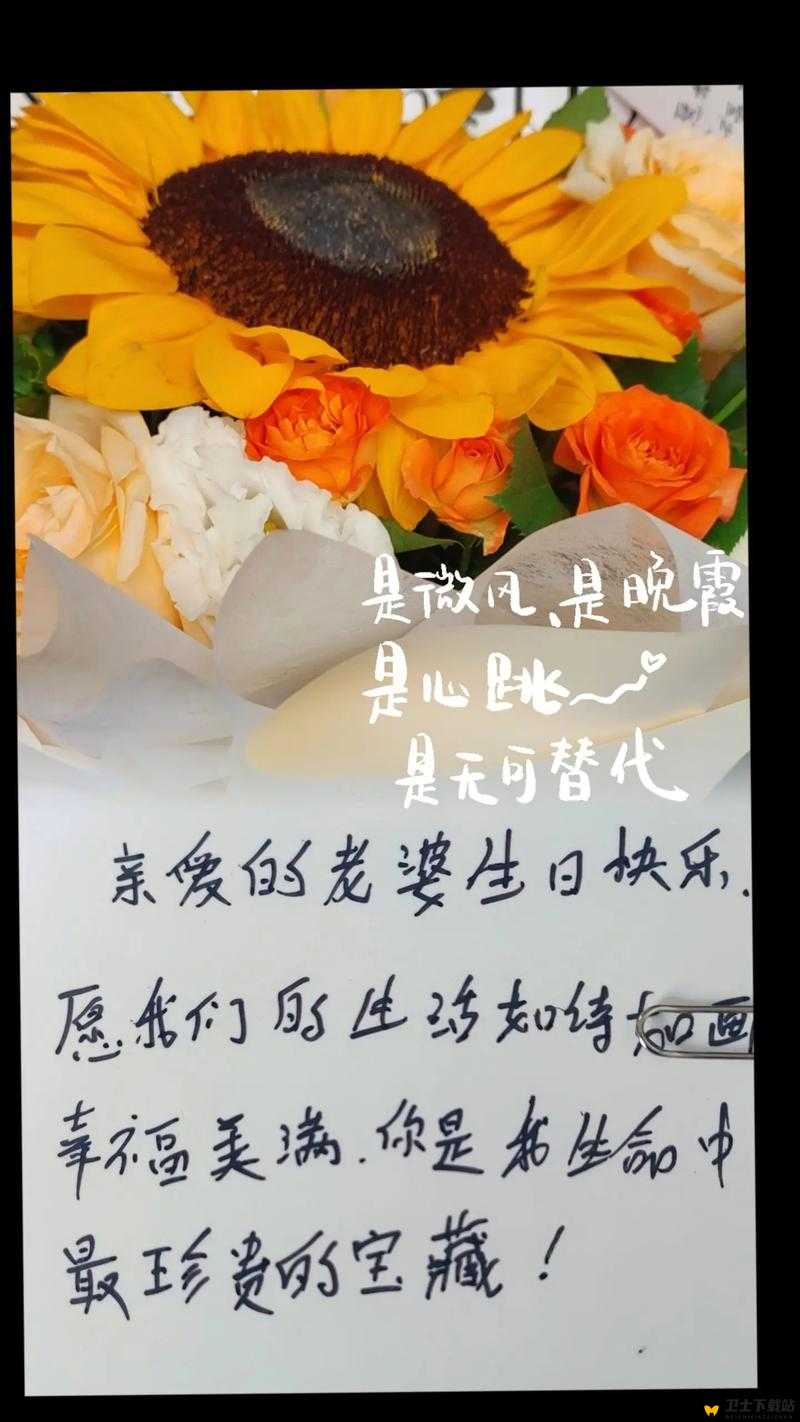 是微风、是晚霞
是心跳
是无可替代
亲爱的老婆生日快乐.
愿我们的生活如诗如画
幸福美满.你是我生命中
最珍贵的宝藏！
卫士下载站